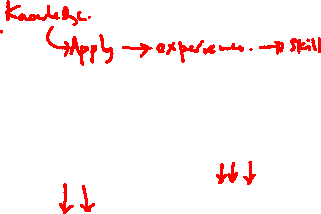 Knowledge.
Apply → experience. → skill